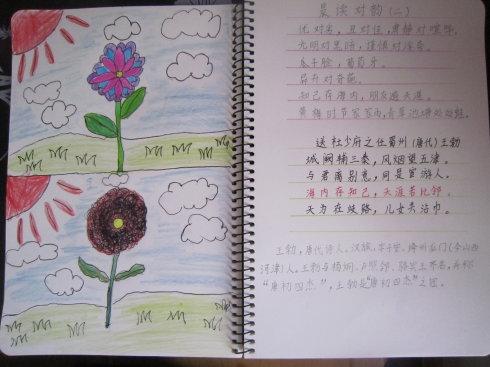 晨读对韵(二)
优对劣,丑对佳,肃静对喧哗。
光明对黑暗,谨慎对浮夸。
瓜子脸,葡萄牙。
知己存海内,朋友遍天涯。
黄梅时节家家雨,青草池塘处处蛙。
送杜少府之任蜀州(唐代)王勃
城阙辅三秦,风烟望五津。
与君离别意,同是宦游人。
海内存知己,天涯若比邻。
无为在歧路,儿女共沾巾。
王勃,唐代诗人。汉族,字子安。绛州龙门(今山西
河津)人。王勃与杨炯、卢照邻、骆宾王齐名,并称
“唐初四杰”,王勃是“唐初四杰”之冠。